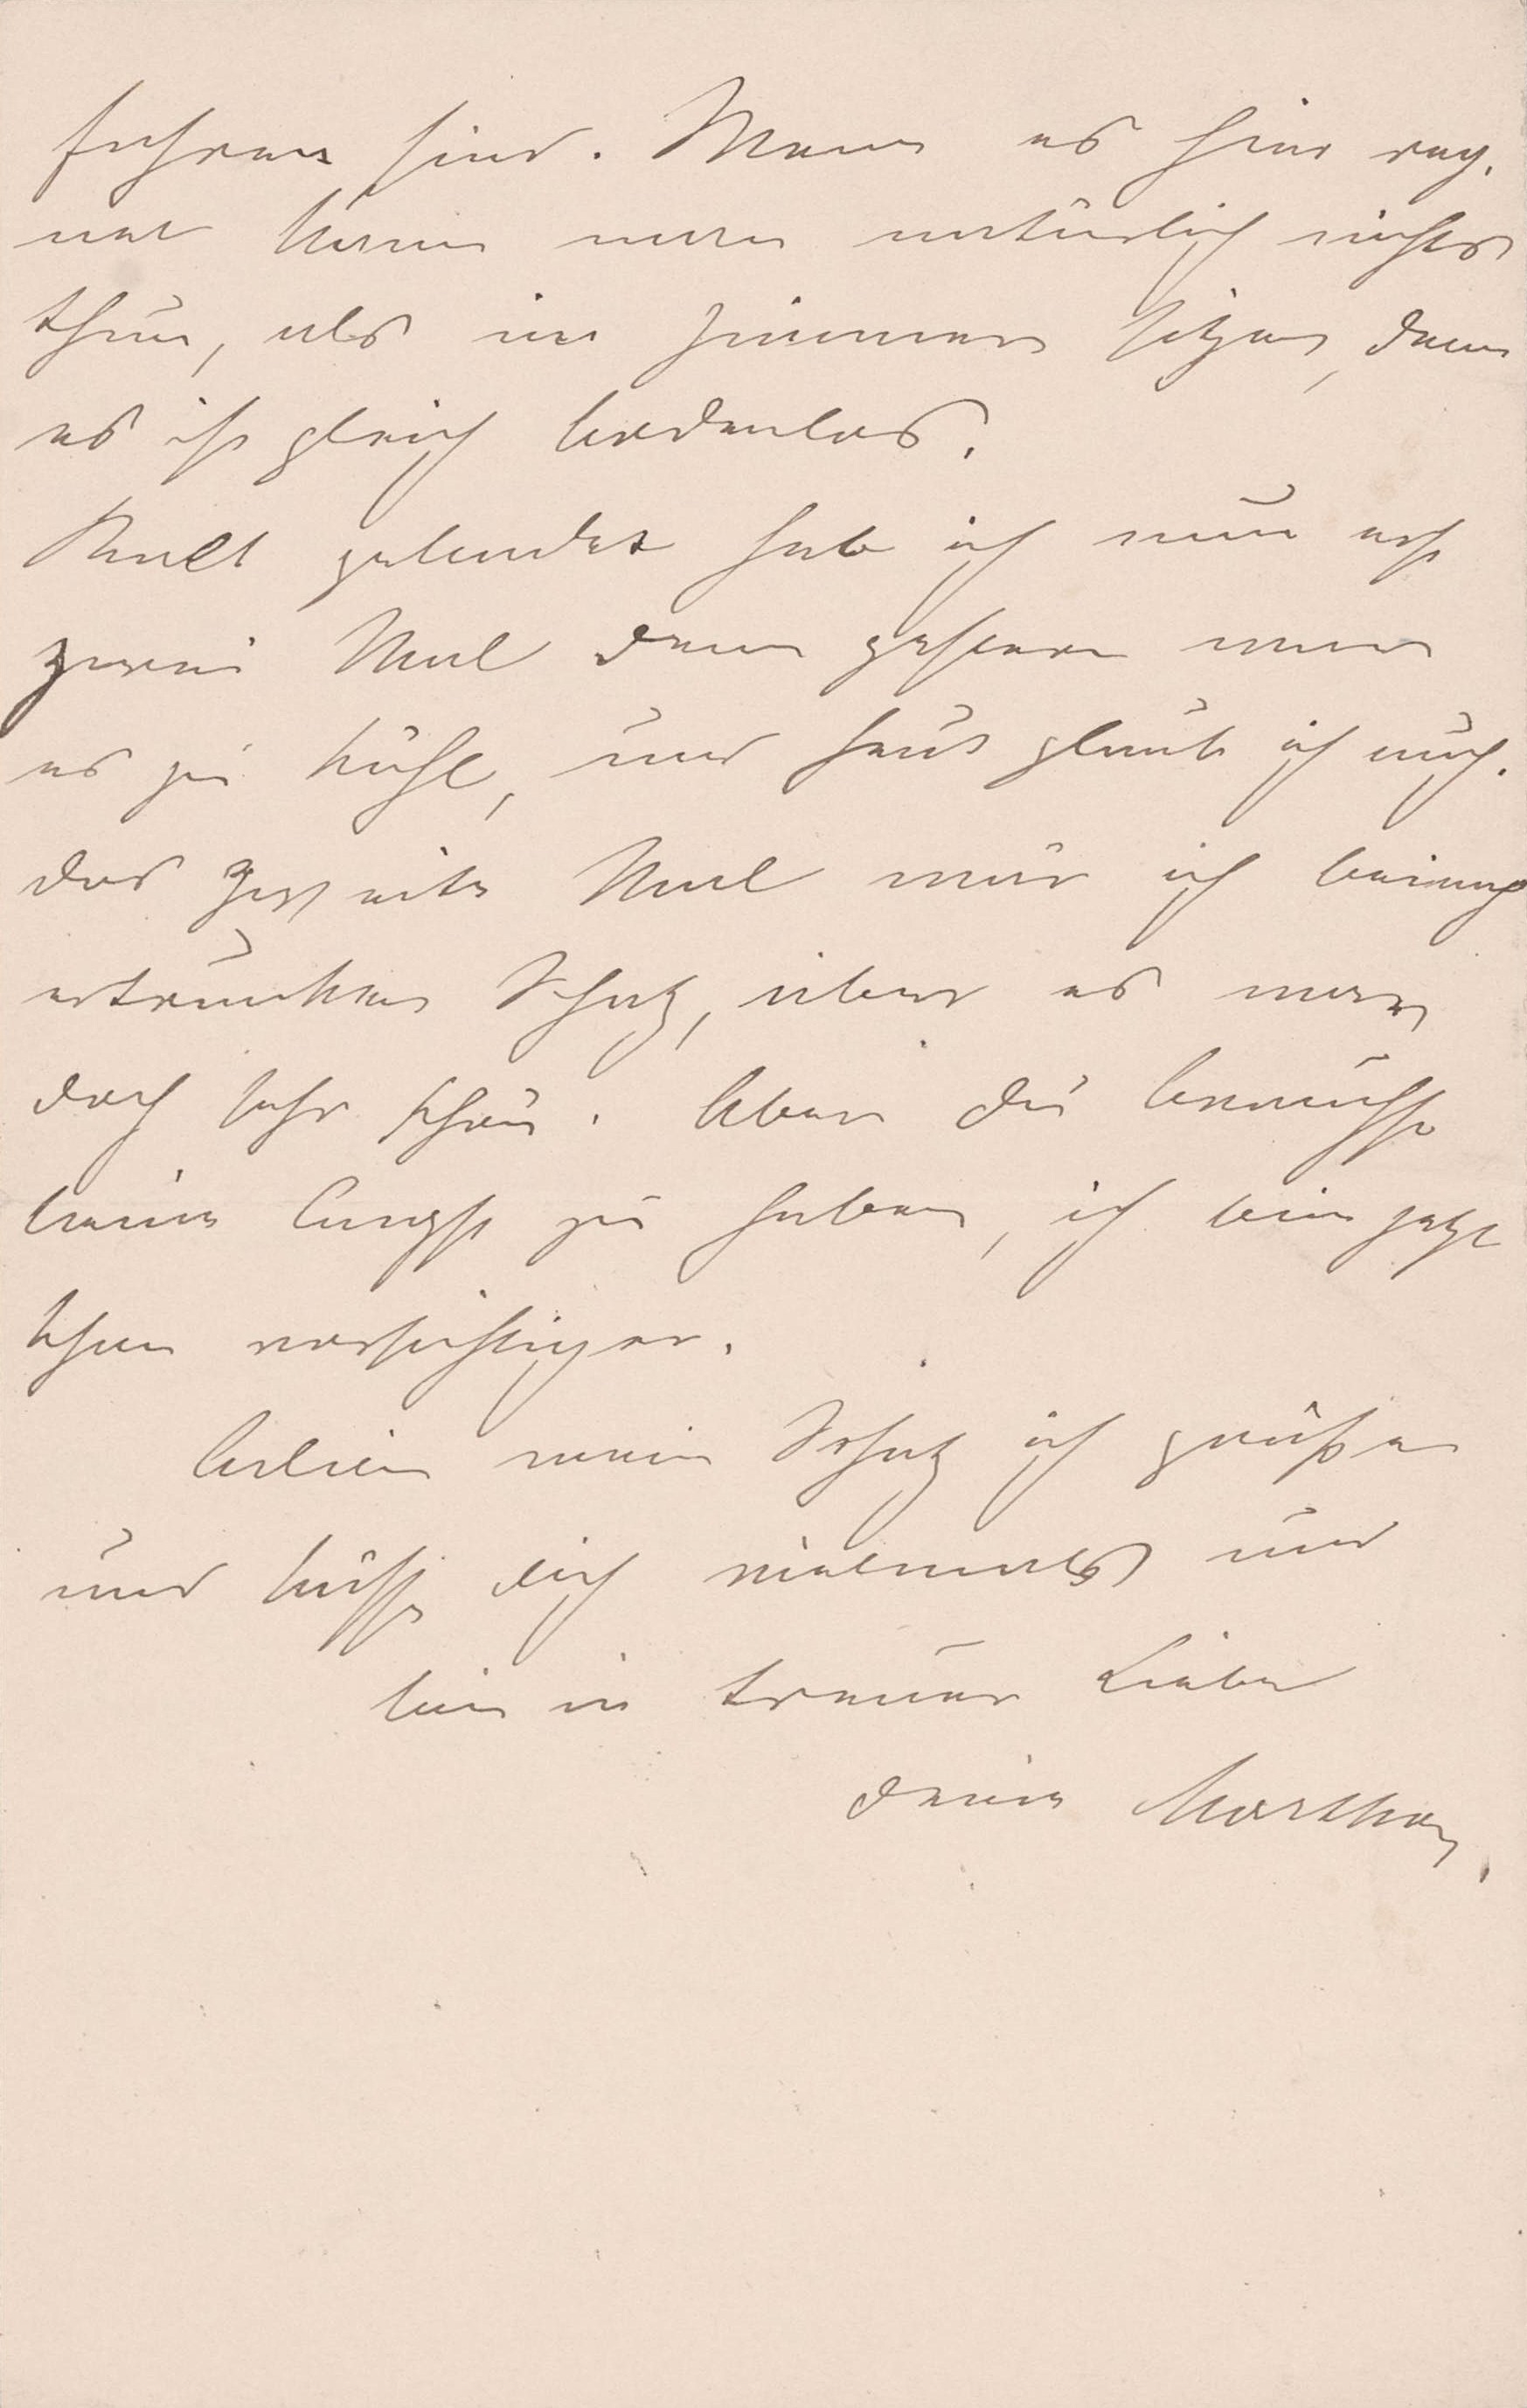 fahren sind. Wenn es hier reg-
net kann man natürlich nichts
thun, als im Zimmer sitzen, denn
es ist gleich bodenlos.
Kalt gebadet hab ich nun erst
zwei Mal denn gestern war
es zu kühl, und heut glaub ich auch.
das zweite Mal wär ich beinah
ertrunken Schatz, aber es war
doch sehr schön. Aber Du brauchst
keine Angst zu haben, ich bin jetzt
schon vorsichtiger.
Adieu mein Schatz ich grüße
und küsse Dich vielmals und
bin in treuer Liebe
Deine Martha,